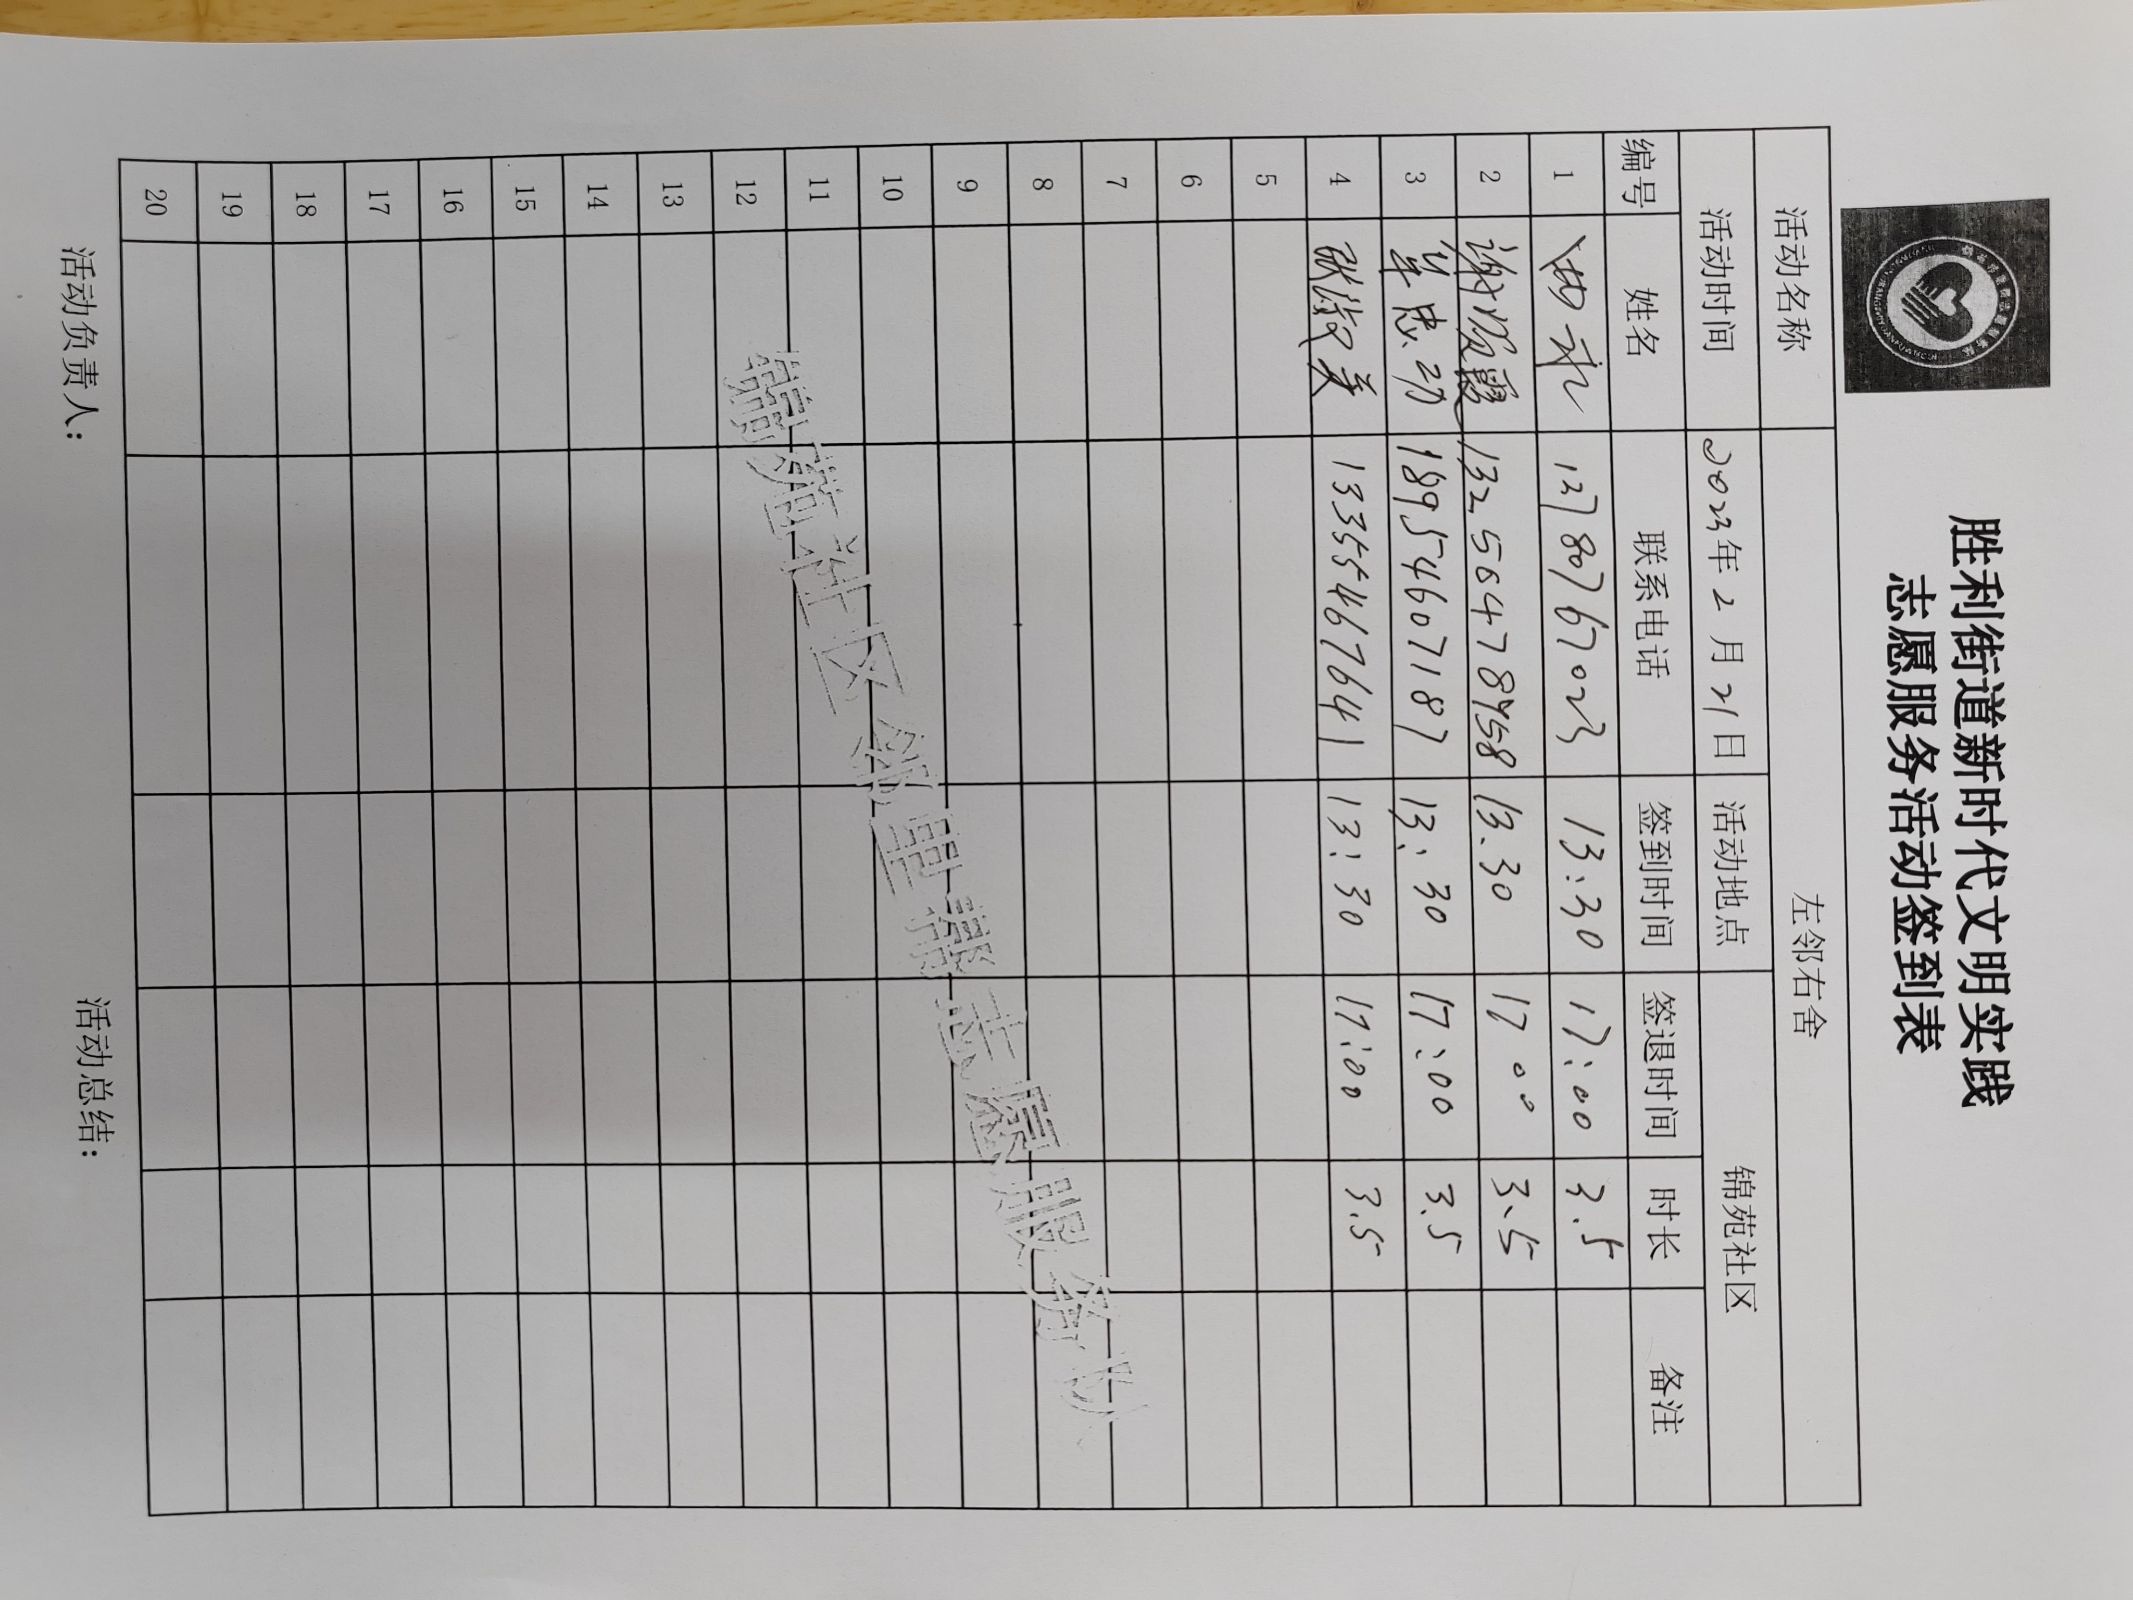 胜利街道新时代文明实践
志愿服务活动签到表
活动名称 左邻右舍
活动时间 2023年2月21日 活动地点 锦苑社区
编号 姓名 联系电话 签到时间 签退时间 时长 备注
1 13780767023 13:30 17:00 3.5
2 13256478958 13.30 17 00 3.5
3 单忠功 18954607187 13:30 17:00 3.5
4 13355467641 13:30 17:00 3.5
5
6
7
8
9
10
11
12
13
14
15
16
17
18
19
20
锦苑社区邻里帮志愿服务
活动负责人: 活动总结: